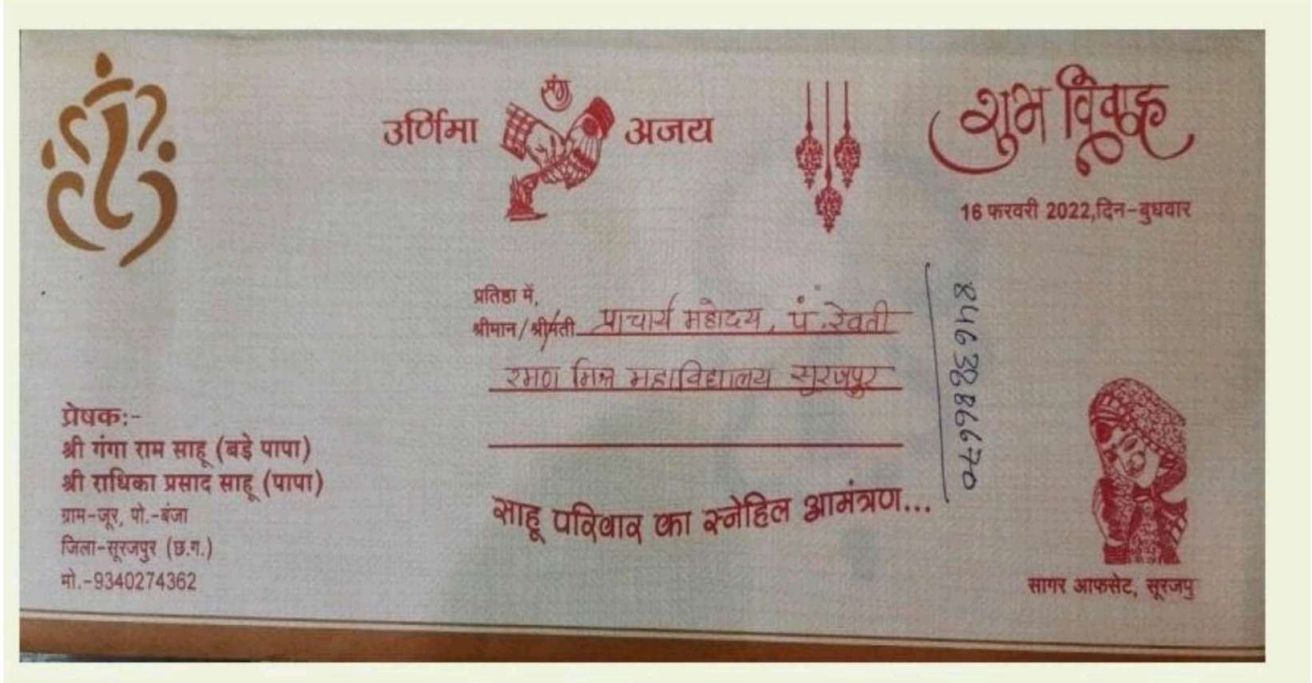 उर्णिमा संग अजय
शुभ विवाह
16 फरवरी 2022,दिन-बुधवार
प्रतिष्ठा में,
श्रीमान/श्रीमती प्राचार्य महोदय, पं. रेवती
रमण मिश्र महाविद्यालय सूरजपुर
साहू परिवार का स्नेहिल आमंत्रण...
प्रेषक:-
श्री गंगा राम साहू (बड़े पापा)
श्री राधिका प्रसाद साहू (पापा)
ग्राम-जूर, पो.-बंजा
जिला-सूरजपुर (छ.ग.)
मो.-9340274362
सागर आफसेट, सूरजपु